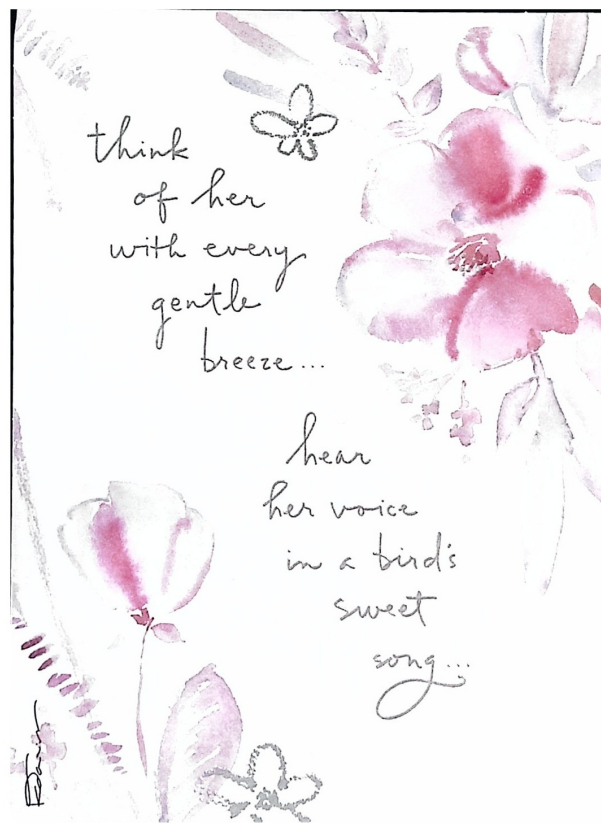 think
of her
with every
gentle
breeze...
hear
her voice
in a bird's
sweet
song...